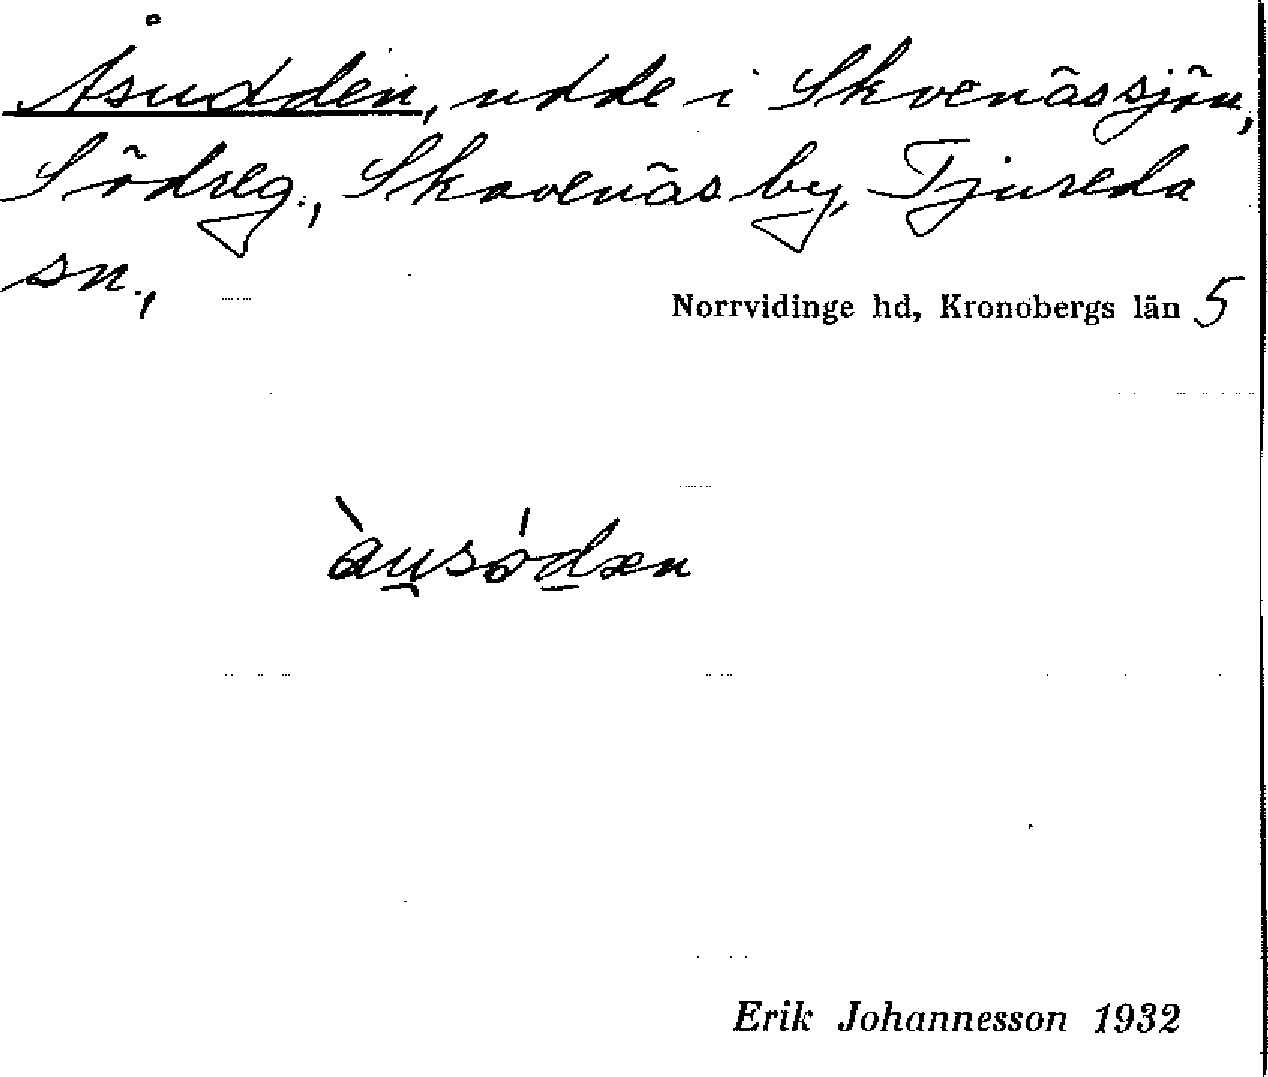 Åsudden, udde i Skvenässjön,
Södreg., Skvenäs by, Tjureda
sn.,
Norrvidinge hd, Kronobergs län 5
àu̯sö́dæn
Erik Johannesson 1932